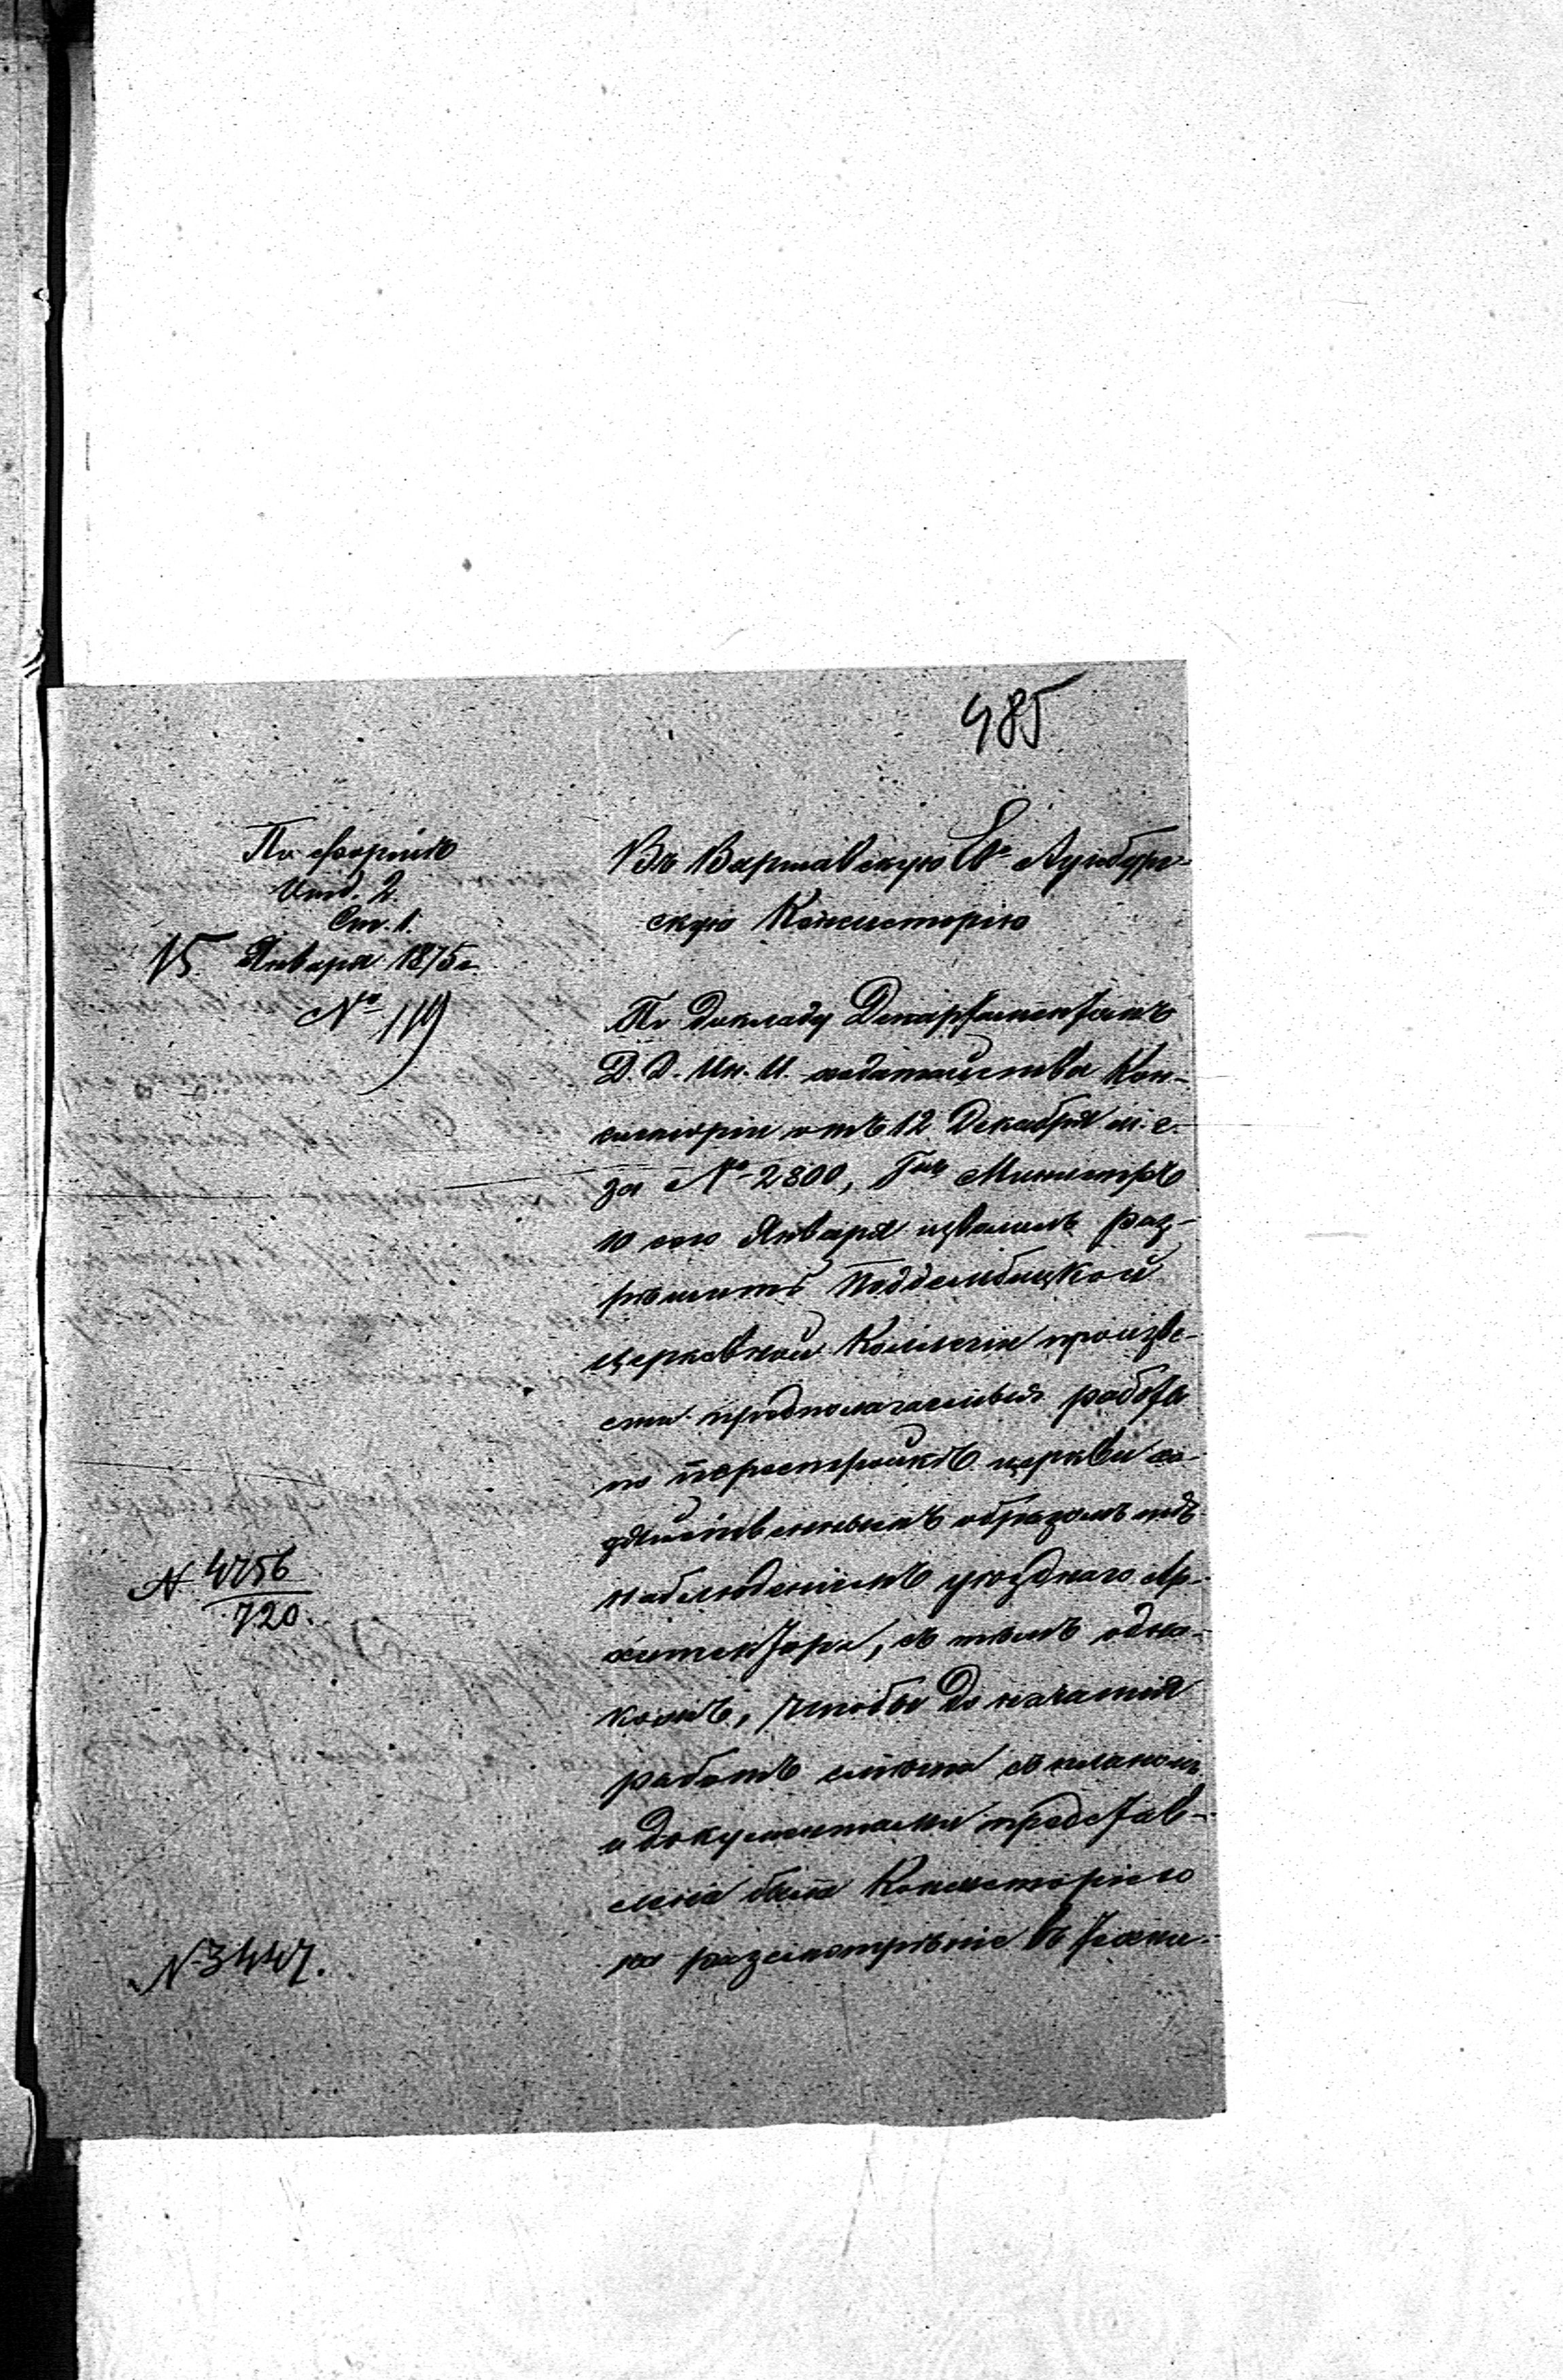 485
По формѣ
Отд. 2.
Ст. 1.
15 Января 1875 г.
№ 119
Въ Варшавскую Ев. Аугсбург-
скую Консисторію
По докладу Департаментомъ
Д. Д. Ин. И. ходатайства Кон-
систоріи отъ 12 Декабря м. г.
за № 2800, Гнъ Министръ
10 сего Января изволилъ раз-
рѣшить Поддембицкой
церковной Коллегіи произве-
сти предполагаемыя работы
по перестройкѣ церкви хо-
зяйственнымъ образомъ подъ
наблюденіемъ уѣзднаго Ар-
хитектора, съ тѣмъ одна-
кожъ, чтобы до начатія
работъ смѣта съ планомъ
и документами представ-
лена была Консисторіею
на разсмотрѣніе въ Техни-
№ 4756
720.
№ 3447.